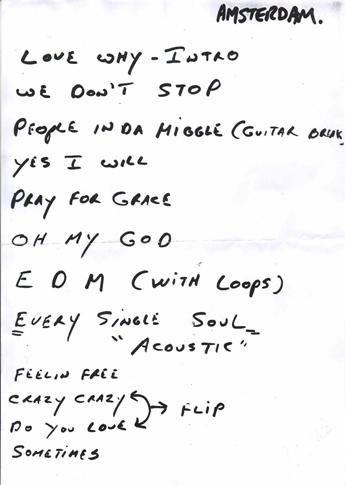 AMSTERDAM.
LOVE WHY - INTRO
WE DON'T STOP
PEOPLE IN DA MIGGLE (GUITAR BREAK
YES I WILL
PRAY FOR GRACE
OH MY GOD
E D M (WITH LOOPS)
EVERY SINGLE SOUL
"ACOUSTIC"
FEELIN FREE
CRAZY CRAZY
FLIP
DO YOU LOVE
SOMETIMES